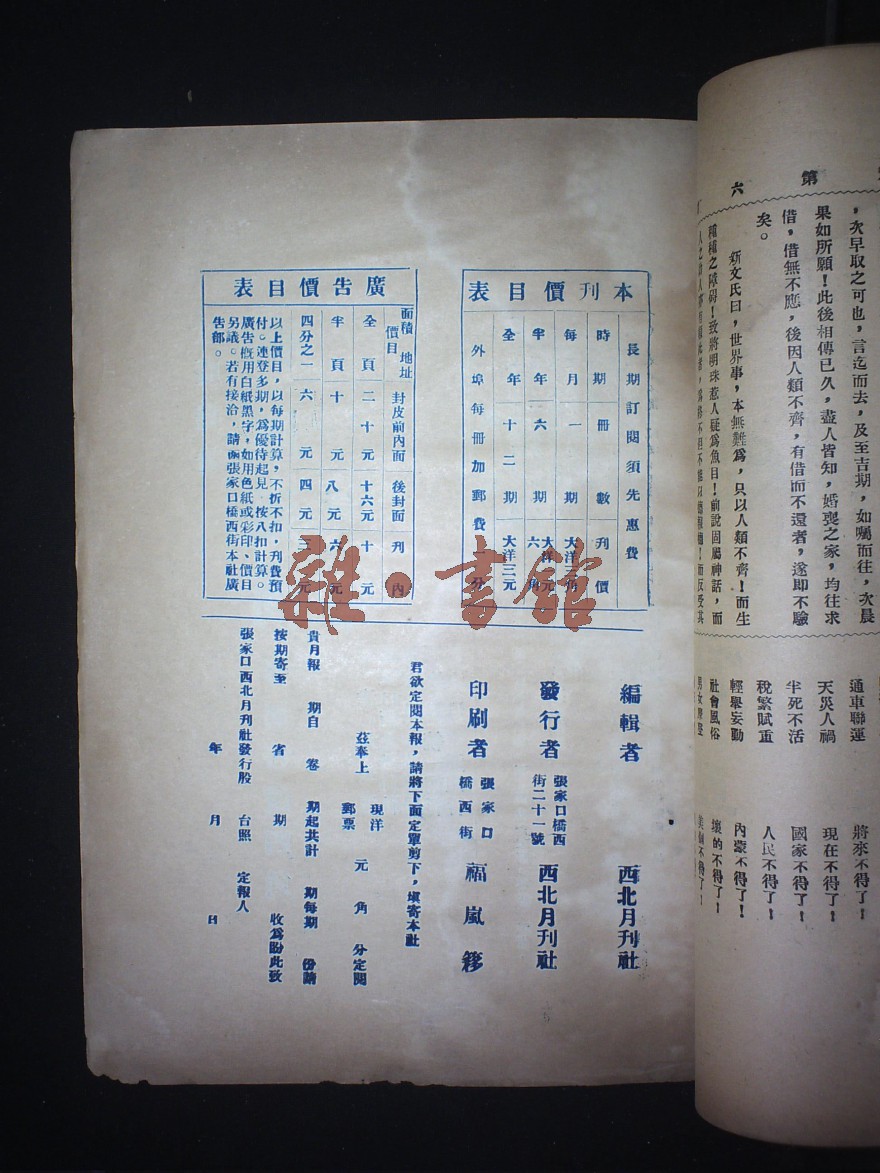 第
六
，次早取之可也，言迄而去，及至吉期，如囑而往，次晨
果如所願！此後相傳已久，盡人皆知，婚喪之家，均往求
借，借無不應，後因人類不齊，有借而不還者，遂即不驗
矣。
斫文氏曰，世界事，本無難爲，只以人類不齊！而生
種種之障碍！致將明珠惹人疑爲魚目！前說固屬神話，而
通車聯運 將來不得了！
天災人禍 現在不得了！
半死不活 國家不得了！
稅繁賦重 人民不得了！
輕舉妄動 內蒙不得了！
社會風俗 壞的不得了！
本刊價目表
長期訂閱須先惠費
時期 冊數 刊價
每月 一期 大洋三角
半年 六期 大洋 元六角
全年 十二期 大洋三元
外埠每冊加郵費一分
廣告價目表
面積 價目 地址 封皮前內面 後封面 刊內
全頁 二十元 十六元 十元
半頁 十元 八元 六元
四分之一 六元 四元 三元
以上價目，以每期計算，不折不扣，刊費預
付。連登多期，爲優待起見 按八扣計算。
廣告槪用白紙黑字，如用色紙或彩印、價目
另議。若有接洽，請函張家口橋西街本社廣
告部。
編輯者 西北月刊社
發行者 張家口橋西街二十一號 西北月刊社
印刷者 張家口橋西街 福嵐
君欲定閱本報，請將下面定單剪下，填寄本社
茲奉上 現洋 郵票 元 角 分定閱
貴月報 期自 卷 期起共計 期每期 份請
按期寄至 省 期 收爲盼此致
張家口西北月刊社發行股 台照 定報人
年 月 日
雜·書館